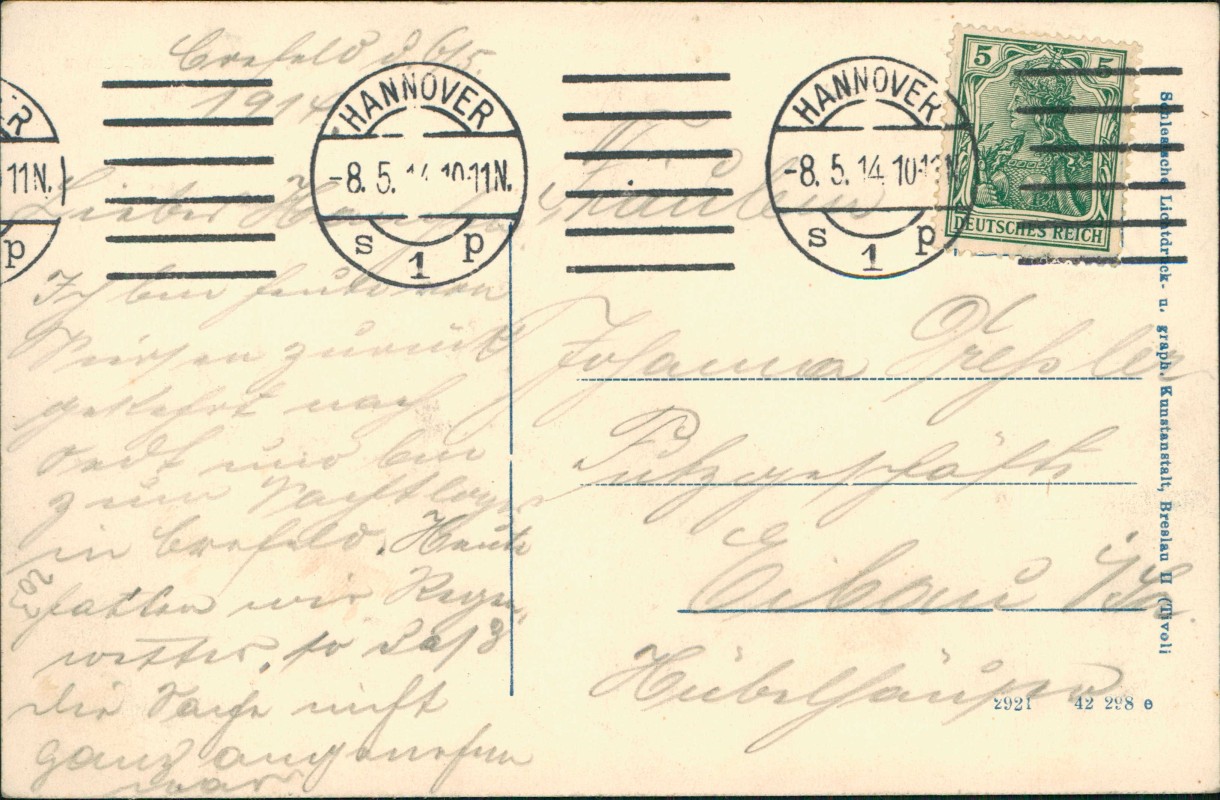 Crefeld d 6/5.
1914
Lieber
Ich bin heute von
Viersen zurück
gekehrt nach
und bin
zum Nachtlager
in Crefeld. Heute
hatten wir Regen-
wetter, so daß
die Sache nicht
ganz angenehm
war
HANNOVER
-8.5. 10-11N.
s 1 p
HANNOVER
-8.5.14 10-11N
s 1 p
R
11N.
p
5 5
DEUTSCHES REICH
Fräulein
Johanna
Putzgeschäft
Eibau i/Sa.
Schlesische Lichtdruck- u. graph. Kunstanstalt, Breslau II (Tivoli
2921 42 298 e